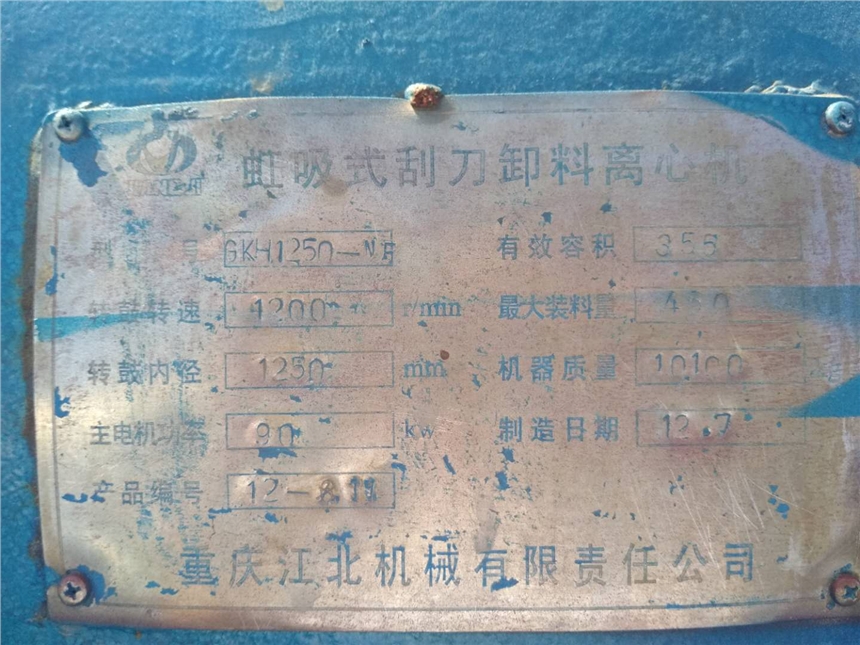 虹吸式刮刀卸料离心机
型 号 GKH1250-N
有效容积 355
转鼓转速 1200 r/min
最大装料量
转鼓内径 1250 mm
机器质量 10100
主电机功率 90 kw
制造日期 12.7
产品编号
重庆江北机械有限责任公司